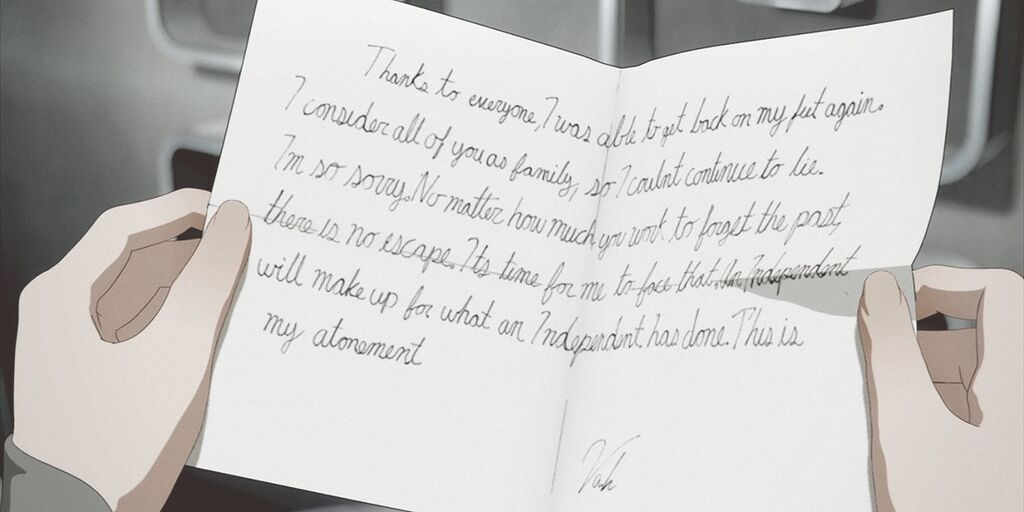 Thanks to everyone, I was able to get back on my feet again.
I consider all of you as family, so I could'nt continue to lie.
I'm so sorry. No matter how much you want to forget the past,
there is no escape. It's time for me to face that. An Independent
will make up for what an Independent has done. This is
my atonement
Vah